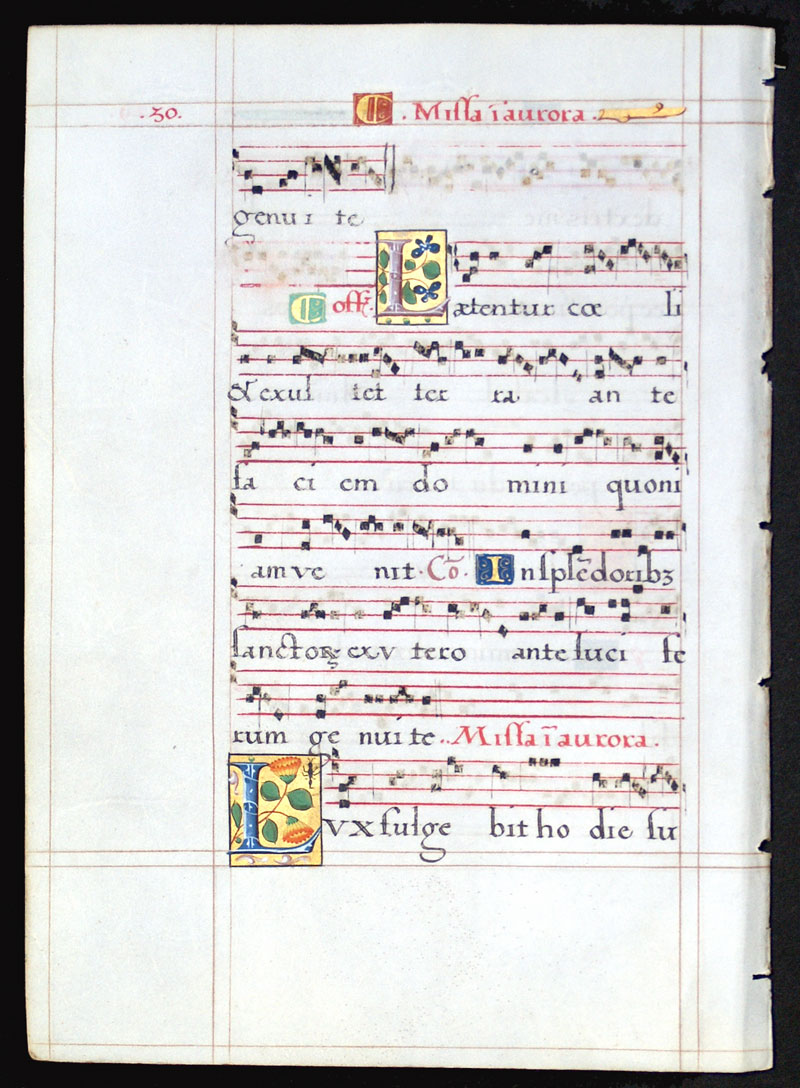 .30. C. Missa ī aurora.
genu i te
C off. L ætentur cœ li
& exul tet ter ra an te
fa ci em do mini quoni
am ve nit. Cō. I n splēdoribꝫ
sanctoꝝ ex v tero ante luci fe
rum ge nui te.. Missa ī aurora.
L vx fulge bit ho die su